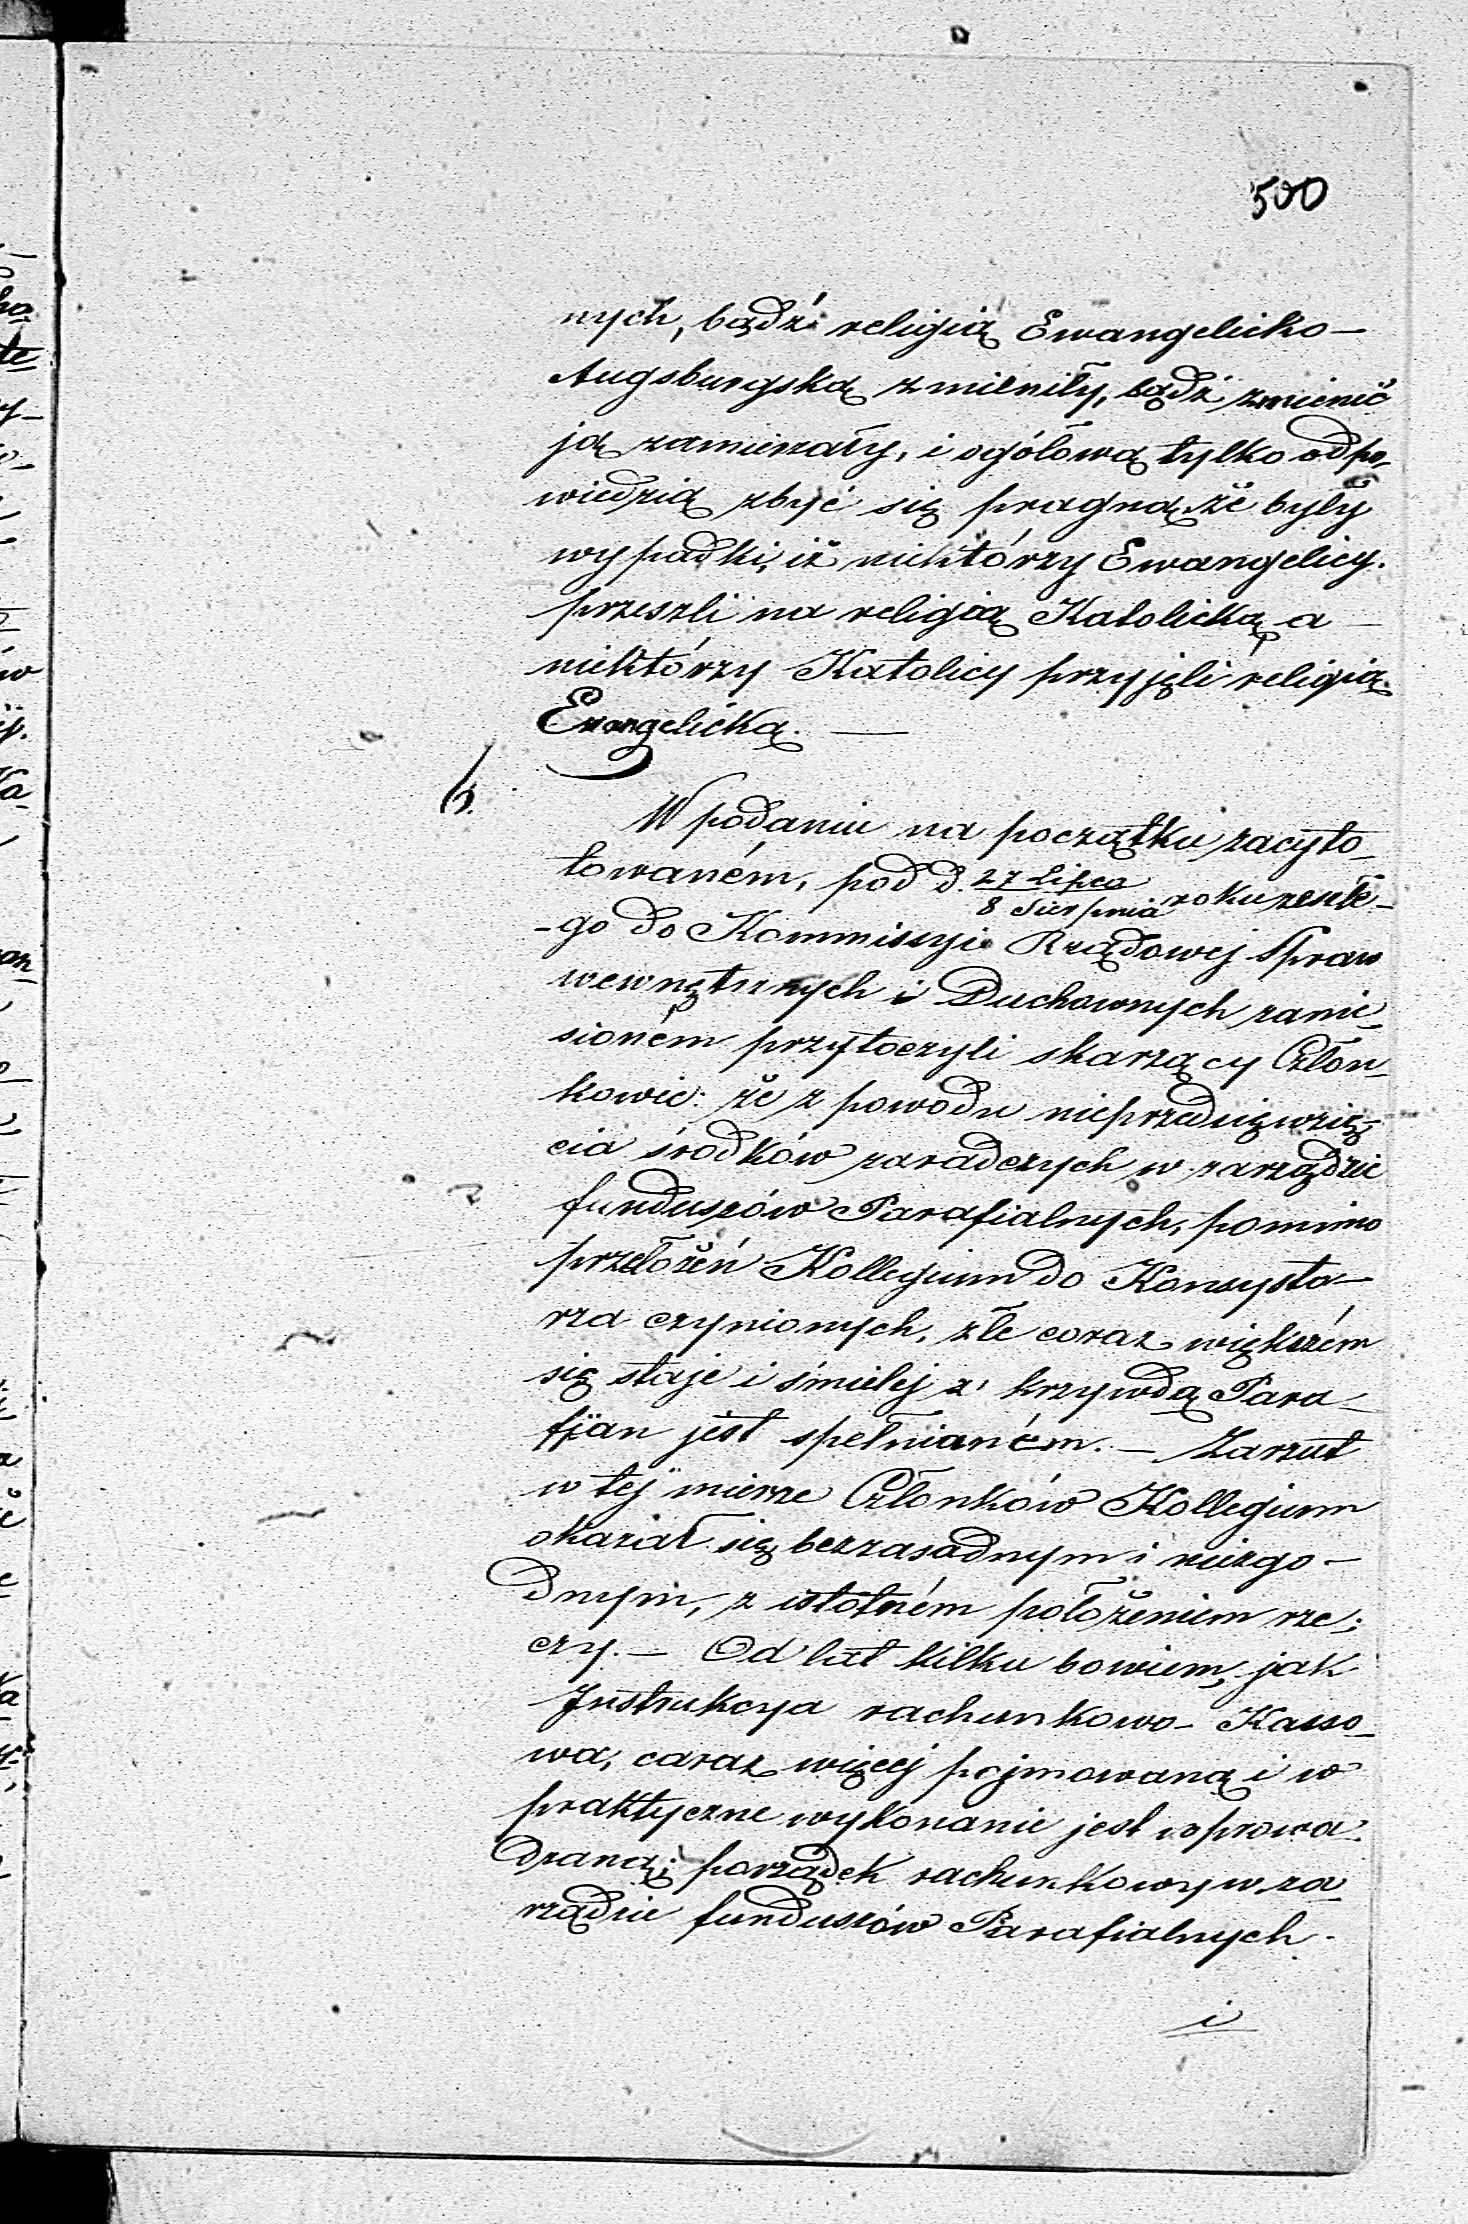 500
nych, bądź religią Ewangelicko-
Augsburgską zmieniły, bądź zmienić
ją zamierzały, i ogółową tylko odpo-
wiedzią zbyć się pragną że były
wypadki, iż niektórzy Ewangelicy
przeszli na religią Katolicką a -
niektórzy Katolicy przyjęli religią
Ewangelicką. —
6.
W podaniu na początku zacyto-
towaném, pod d. 27 Lipca / 8 Sierpnia roku zeszłe-
-go do Kommissyi Rządowej Spraw
wewnętrznych i Duchownych zanie-
sioném przytoczyli skarzący Człon-
kowie: że z powodu nieprzedsięwzię-
cia środków zaradczych w zarządzie
funduszów Parafialnych, pomimo
przełożeń Kollegium do Konsysto-
rza czynionych, złe coraz większém
się staje i śmielej z krzywdą Para-
fjan jest spełnianém. — Zarzut
w tej mierze Członków Kollegium
okazał się bezzasadnym i niezgo-
dnym, z istotném położeniem rze-
czy. — Od lat kilku bowiem, jak
Instrukcya rachunkowo-Kasso-
wa, coraz więcej pojmowaną i w
praktyczne wykonanie jest wprowa-
dzaną; porządek rachunkowy w za-
rządzie funduszów Parafialnych
i